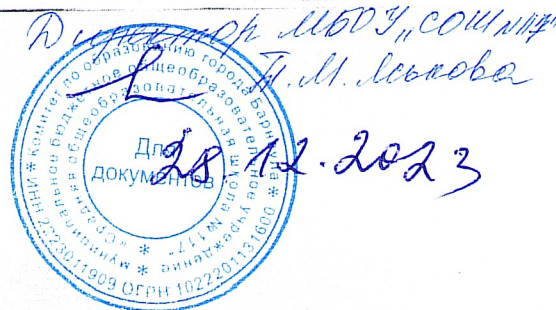 Директор МБОУ "СОШ №117"
Т.М.
28.12.2023
* Комитет по образованию города Барнаула *
муниципальное бюджетное общеобразовательное учреждение
"Средняя общеобразовательная школа №117"
Для
документов
ОГРН 1022201131600